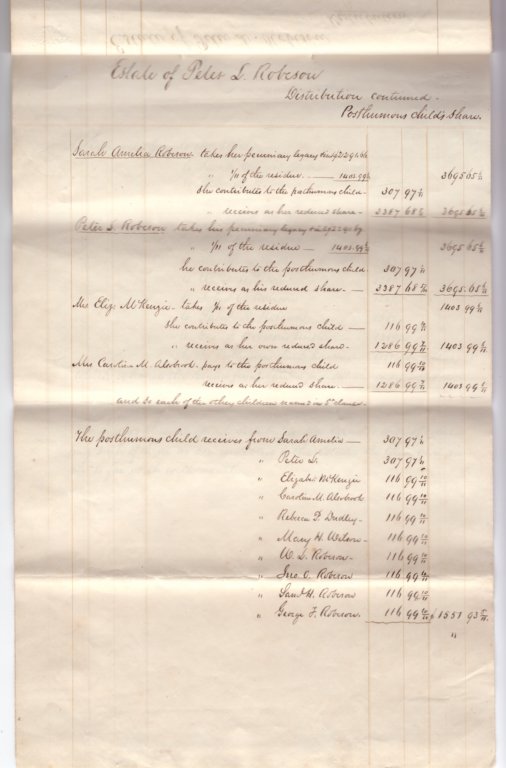 Estate of Peter L. Robeson
Distribution continued -
Posthumous child's share.
Sarah Amelia Robeson takes her pecuniary legacy
" 1/11 of the residue - 1403.99 3695 65
She contributes to the posthumous child - 307 97
" receives as her reduced share - 3387 68 3695 65
Peter L. Robeson takes his pecuniary legacy
" 1/11 of the residue - 1403.99 3695 65
he contributes to the posthumous child 307 97
" receives as his reduced share - 3387 68 3695.65
Mrs Eliza McKenzie - takes 1/11 of the residue 1403 99
She contributes to the posthumous child - 116 99
" receives as her own reduced share - 1286 99 1403 99
Mrs Caroline M. Alsbrook - pays to the posthumous child 116 99 10/11
receives as her reduced share - 1286 99 1403 99
and so each of the other children named in 5th clause -
The posthumous child receives from Sarah Amelia - 307 97
" Peter L. 307 97
" Elizabt McKenzie 116 99 10/11
" Caroline M. Alsbrook 116 99 10/11
" Rebecca P. Dudley - 116 99 10/11
" Mary H. Wilson - 116 99 10/11
" W. L. Robeson - 116 99 10/11
" Jno. C. Robeson 116 99 10/11
" Saml H. Robeson 116 99 10/11
" George F. Robeson. 116 99 10/11 1551 93 5/11
"